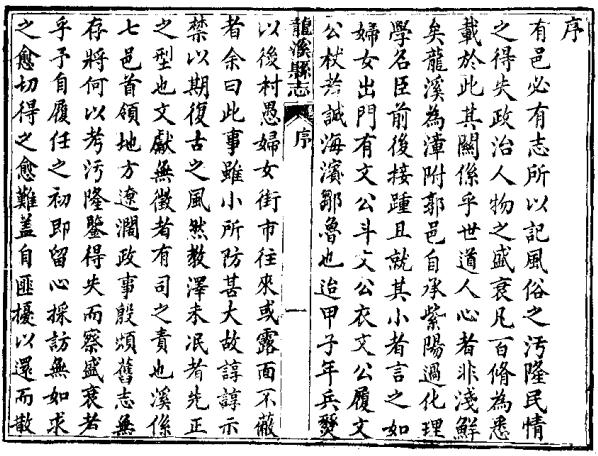 序
有邑必有志所以記風俗之汚隆民情
之得失政治人物之盛衰凡百脩為悉
載於此其關係乎世道人心者非淺鮮
矣龍溪為漳附郭邑自承紫陽過化理
學名臣前後接踵且就其小者言之如
婦女出門有文公斗文公衣文公履文
公杖若誠海濱鄒魯也迨甲子年兵燹
龍溪縣志
序
一
以後村愚婦女街市往來或露面不蔽
者余曰此事雖小所防甚大故諄諄示
禁以期復古之風然教澤未泯者先正
之型也文獻無徵者有司之責也溪係
七邑首領地方遼濶政事殷煩舊志無
存將何以考汚隆鑒得失而察盛衰若
乎予自履任之初即留心採訪無如求
之愈切得之愈難蓋自匪擾以還而散